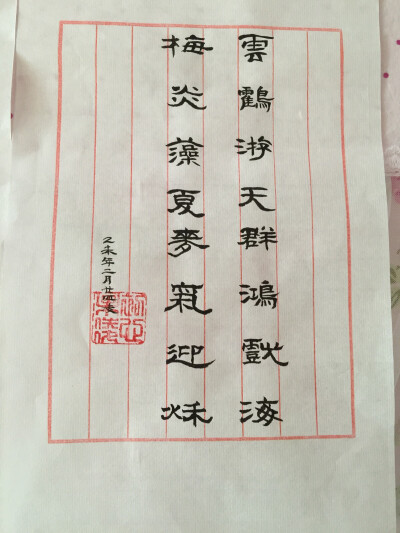 雲鶴游天群鴻戲海
梅炎藻夏麥氣迎秌
乙未年二月廿四